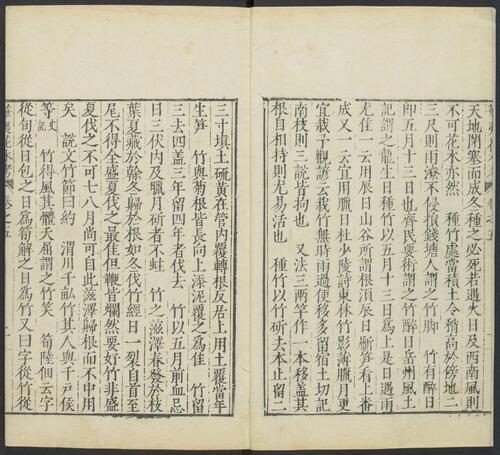 天地閉塞而成冬種之必死若遇火日及西南風則
不可花木亦然 種竹處當積土令稍高於傍地二
三尺則雨潦不侵損錢塘人謂之竹脚 竹有醉日
即五月十三日也齊民要術謂之竹醉日岳州風土
記謂之龍生日種竹以五月十三日爲上是日遇雨
尤佳一云用辰日山谷所謂根須辰日斸笋看上番
成又一云宜用臘日杜少陵詩東林竹影薄臘月更
宜栽予觀諺云栽竹無時雨過便移多留宿土切記
南枝則三説皆拘也 又法三兩竿作一本移蓋其
根自相持則尤易活也 種竹以竹斫去本止留二
三寸填土硫黄在管内覆轉根反居上用土覆當年
生笋 竹與菊根皆長向上添泥覆之爲佳 竹留
三去四盖三年留四年者伐去 竹以五月前血忌
日三伏内及臘月斫者不蛀 竹之滋澤春發於枝
葉夏藏於幹冬歸於根如冬伐竹經日一裂自首至
尾不得全盛夏伐之最佳但鞭皆爛然要好竹非盛
夏伐之不可七八月尚可自此滋澤歸根而不中用
矣 説文竹節曰約 渭川千畝竹其人與千戸侯
等史記 竹得風其體夭屈謂之竹笑 筍陸佃云字
從旬從日包之日爲筍解之日爲竹又曰字從竹從